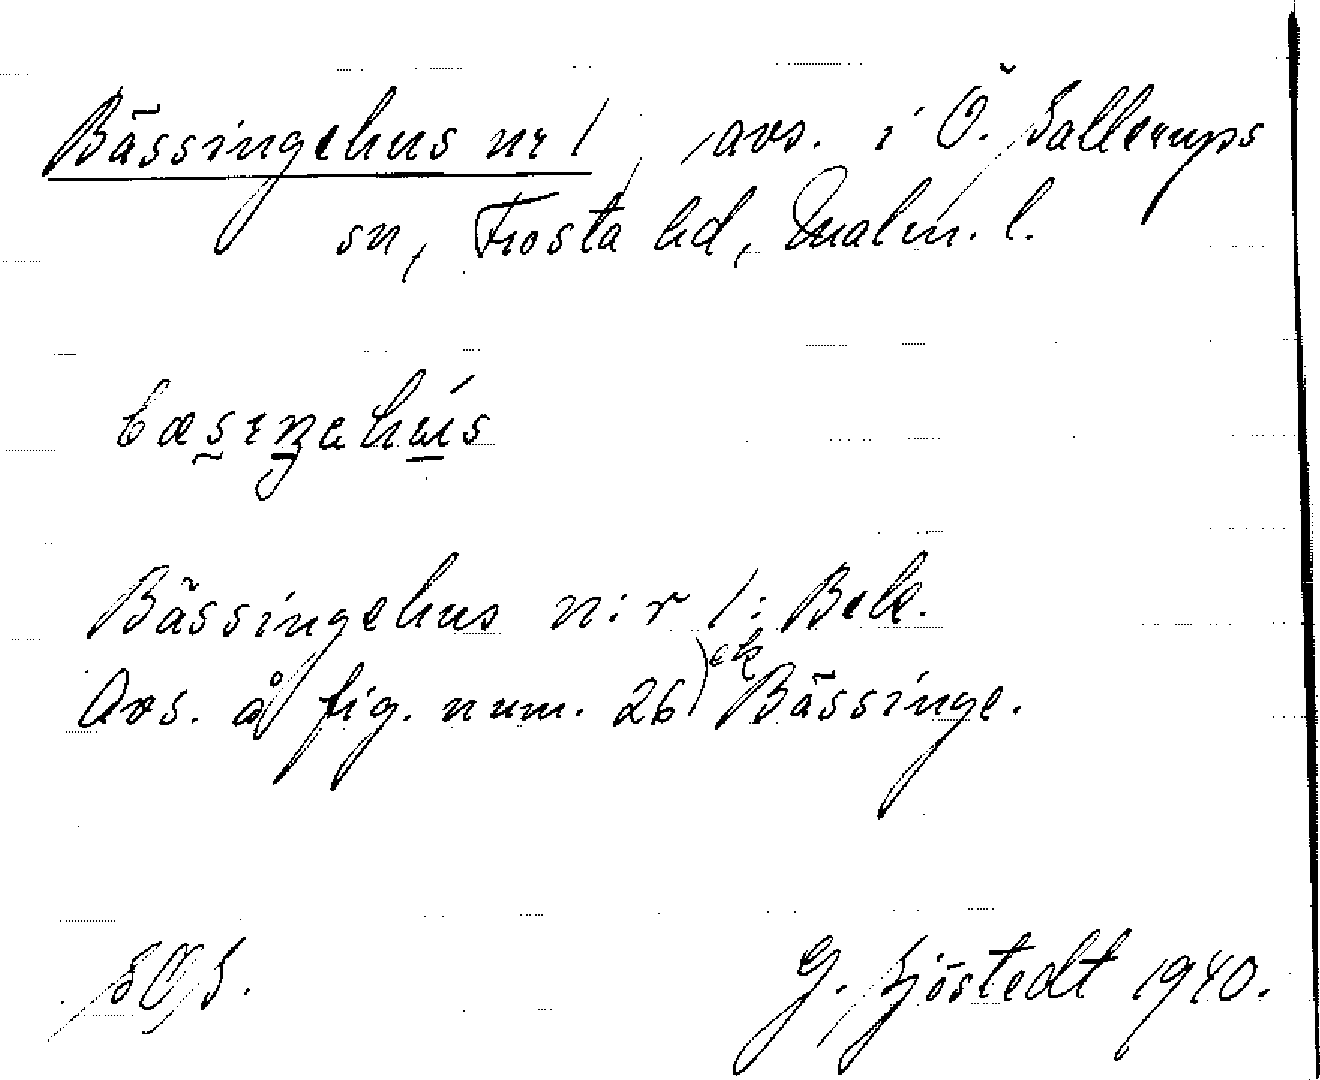 Bässingehus nr 1, avs. i Ö. Sallerups
sn, Frosta hd, Malm. l.
Bässingehus n:r 1: Beb.
Avs. å fig. num. 26) ek Bässinge.
G. Sjöstedt 1940.